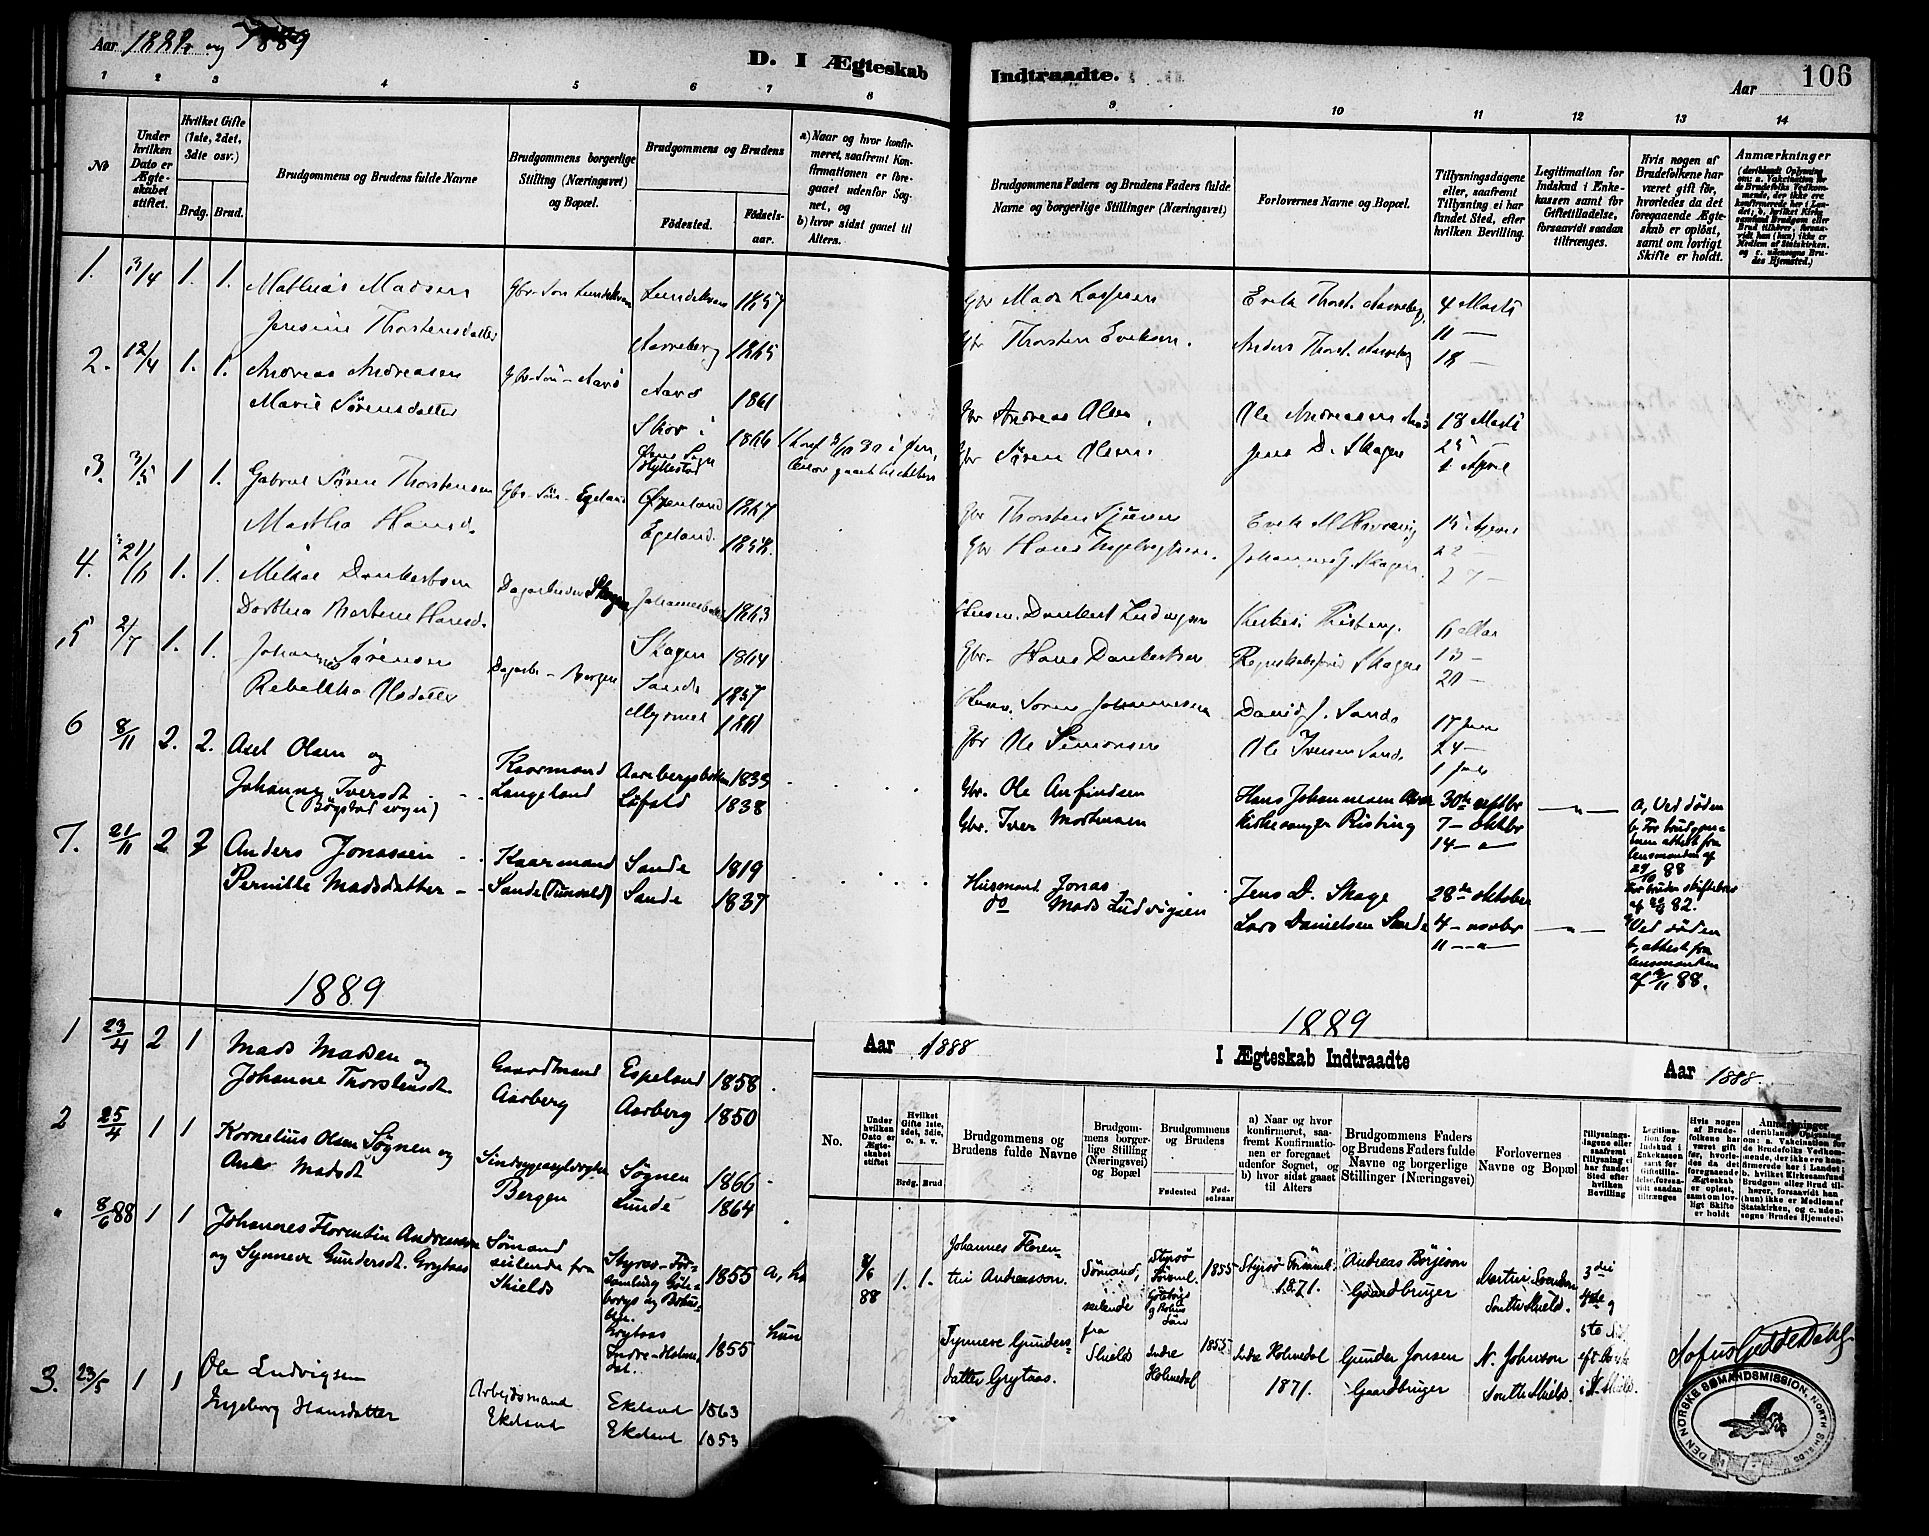 Aar 1888 og 1889
D. I Ægteskab Indtraadte.
Aar 106
1 2 3 4 5 6 7 8 9 10 11 12 13 14
No
Under hvilken Dato er Ægteskabet stiftet.
Hvilket Gifte (1ste, 2det, 3die osv.)
Brdg. Brud.
Brudgommens og Brudens fulde Navne
Brudgommens borgerlige Stilling (Næringsvei) og Bopæl.
Brudgommens og Brudens
Fødested.
Fødselsaar.
a) Naar og hvor konfirmeret, saafremt Konfirmationen er foregaaet udenfor Sognet, og
b) hvor sidst gaaet til Alters.
Brudgommens Faders og Brudens Faders fulde Navne og borgerlige Stillinger (Næringsvei)
Forlovernes Navne og Bopæl.
Tillysningsdagene eller, saafremt Tillysning ei har fundet Sted, efter hvilken Bevilling.
Legitimation for Indskud i Enkekassen samt for Giftetilladelse, forsaavidt saadan tiltrænges.
Hvis nogen af Brudefolkene har været gift før, hvorledes da det foregaaende Ægteskab er opløst, samt om lovligt Skifte er holdt.
Anmærkninger
(deriblandt Oplysning om: a. Vakcination for Brudefolks Vedkommende, der ikke ere konfirmerede her i Landet; b. hvilket Kirkesamfund Brudgom eller Brud tilhører, forsaavidt han (hun) ikke er Medlem af Statskirken, og c. udensogns Brudes Hjemsted.)
1. 3/4 1. 1. Mathias Madsen
Lundekvam 1857
Gbr Mads Kaspersen
4 Marts
Jensine Thorstensdatter
Aarreberg 1865
Gbr Thorsten Eriksen.
11 —
18 —
2. 12/4 1. 1. Andreas Andreasen
Gbr-Søn - Aarø
Aarø 1861
Gbr Andreas Olsen
18 Marts
Marie Sørensdatter
Skor i
1866
Gbr Søren Olsen.
Jens D. Skagen
25
1 April
3. 3/5 1 1. Gabriel Søren Thorstensen
Gbr-Søn - Egeland
1867
Gbr Thorsten
15 April
Martha Hansd.
Egeland.
22 —
4. 21/6 1. 1. Mikal Dankertsen
Dagarbeider Skagen
1863
Husm. Dankert Ludvigsen
Kirkes. Risting.
6 Mai
Dorthea Martine Hansd.
Skagen 1864
Gbr. Hans Dankertsen
Skagen
13 —
20 —
5 2/7 1. 1. Johannes Sørensen
Dagarb. - Bergen
Sande 1857
Husm. Søren Johannesen
David J. Sande
17 Juni
Rebekka Olsdatter
Myrnes 1861
Gbr Ole Simonsen
Ole Iversen Sande
24 —
1 Juli
6 8/11 2. 2. Axel Olsen og
Kaarmand
Aarebergsbotten 1835
Gbr. Ole Anfindsen
Hans Johannesen
30te septbr
a, Ved døden
Johanne Iversdt
(Bøgstad sogn)
Langeland
Løfald 1838
Gbr. Iver Mortensen
Kirkesanger Risting
7 — oktbr
14 — "
b. For brudgommen attest fra lensmanden af 27/10 88
For bruden skiftebrev af 82.
7. 21/11 2 2 Anders Jonassen
Kaarmand
Sande 1819
Husmand Jonas
Jens D. Skage
28de oktober
a, Ved døden
Pernille Madsdatter
Sande (Tunvald)
Sande 1837
do Mads Ludvigsen
Lars Danielsen Sande
4 — novbr
11 — "
b, attest fra lensmanden af 88.
1889
1889
1 23/4 2 1 Mads Madsen og
Gaardmand
Espeland 1858
Johanne Thorstensdt.
Aarberg
Aarberg 1850
2 25/4 1 1 Kornelius Olsen Søgnen og
Sindssygeasylvogter
Søgnen 1866
Ane Madsdt
Bergen
Lunde 1864
8/6 88 1 1 Johannes Florentin Andreassen
og Synneve Gundersdt. Grytaas
Sømand
seilende fra
Shields
Styrsø-Församling Göteborgs og Bohuslän.
1855
Grytaas
Indre-Holmedal.
1855
3. 23/5 1 1 Ole Ludvigsen
Arbeidsmand
Ekeland 1863
Ingeborg Hansdatter
Ekeland
Ekeland 1853
Aar 1888
I Ægteskab Indtraadte
Aar 1888.
No.
Under hvilken Dato er Ægteskabet stiftet
Hvilket Gifte 1ste, 2det, 3die, o. s. v.
Brdg. Brud
Brudgommens og Brudens fulde Navne
Brudgommens borgerlige Stilling (Næringsvei) og Bopæl
Brudgommens og Brudens
Fødested
Fødselsaar
a) Naar og hvor konfirmeret, saafremt Konfirmationen er foregaaet udenfor Sognet, og b) hvor sidst gaaet til Alters
Brudgommens Faders og Brudens Faders fulde Navne og borgerlige Stillinger (Næringsvei)
Forlovernes Navne og Bopæl
Tillysningsdagene eller saafremt Tillysning ei har fundet Sted efter hvilken Bevilling
Legitimation for Indskud i Enkekassen samt for Giftetilladelse, forsaavidt saadan tiltrænges
Hvis nogen af Brudefolkene har været gift før, hvorledes da det foregaaende Ægteskab er opløst, samt om lovligt Skifte er holdt
Anmærkninger
(deriblandt Oplysning om: a. Vakcination for Brudefolks Vedkommende, der ikke ere konfirmerede her i Landet; b. hvilket Kirkesamfund Brudgom eller Brud tilhører, forsaavidt han (hun) ikke er Medlem af Statskirken, og c. udensogns Brudes Hjemsted)
8/6 88 1. 1.
Johannes Florentin Andreasson.
Sømand, seilende fra Shields
Styrsø Församl. Göteborgs og Bohus Län
1855
Styrsø Församl. 1871.
Andreas Börjeson
Gaardbruger
Martin Svendsen
South Shields.
3die
4de og
5te
Synneve Gundersdatter Grytaas.
Indre Holmedal
1855
Indre Holmedal
1871.
Gunder Jonsen
Gaardbruger
N. Johnson
South Shields.
i N. Shields.
Sofus Gjelde Dahl.
DEN NORSKE SØMANDSMISSION, NORTH SHIELDS